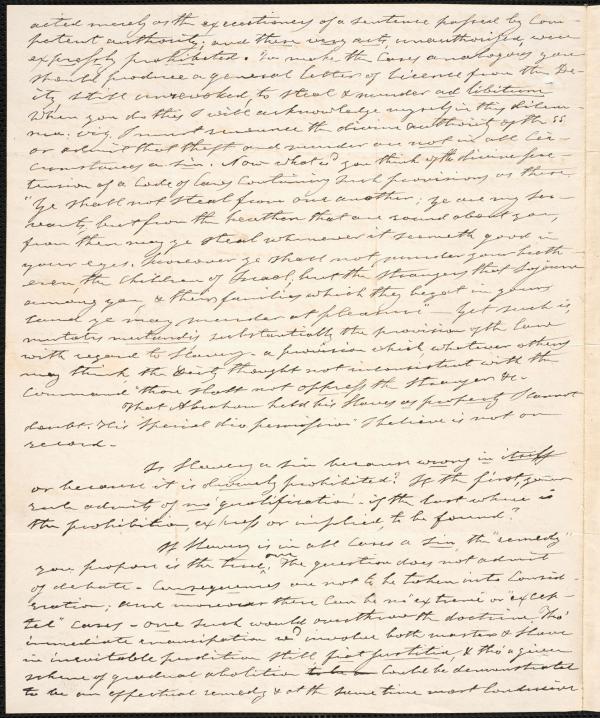 acted merely as the executioners of a sentence passed by com-
petent authority, and these very acts, unauthorized, were
expressly prohibited. To make the cases analogous you
should produce a general letter of licence from the De-
ity, still unrevoked, to steal & murder ad libitum
When you do this I will acknowledge myself in this dilem-
ma. viz, I must renounce the divine authority of the SS.
or admit that theft and murder are not in all cir-
cumstances a sin. Now what wd you think of the divine pre-
tension of a Code of Laws containing such provisions as these
"Ye shall not steal from one another; ye are my ser-
vants, but from the heathen that are round about you,
from them may ye steal whenever it seemeth good in
your eyes. Moreover ye shall not murder your breth-
ren, the children of Israel, but the strangers that sojourn
among you, & their families which they begat in your
land ye may murder at pleasure" - Yet such is,
mutatis mutandis substantially the provision of the Law
with regard to Slavery - a provision which, whatever others
may think the Deity thought not inconsistent with the
command "thou shalt not oppress the stranger &c.
That Abraham held his slaves as property I cannot
doubt. His special permission I believe is not on
record -
Is Slavery a sin because wrong in itself
or because it is divinely prohibited? If the first, your
rule admits of no 'qualification'. if the last where is
the prohibition, express or implied, to be found?
If Slavery is in all cases a sin, the "remedy"
you propose is the true one. The question does not admit
of debate - Consequences are not to be taken into consid-
eration; and moreover there can be no "extreme or excep-
ted" cases - one such would overthrow the doctrine. Tho'
immediate emancipation wd involve both master & slave
in inevitable perdition still fiat justitia, & tho' a given
scheme of gradual abolition could be demonstrated
to be an effectual remedy & at the same time most conducive